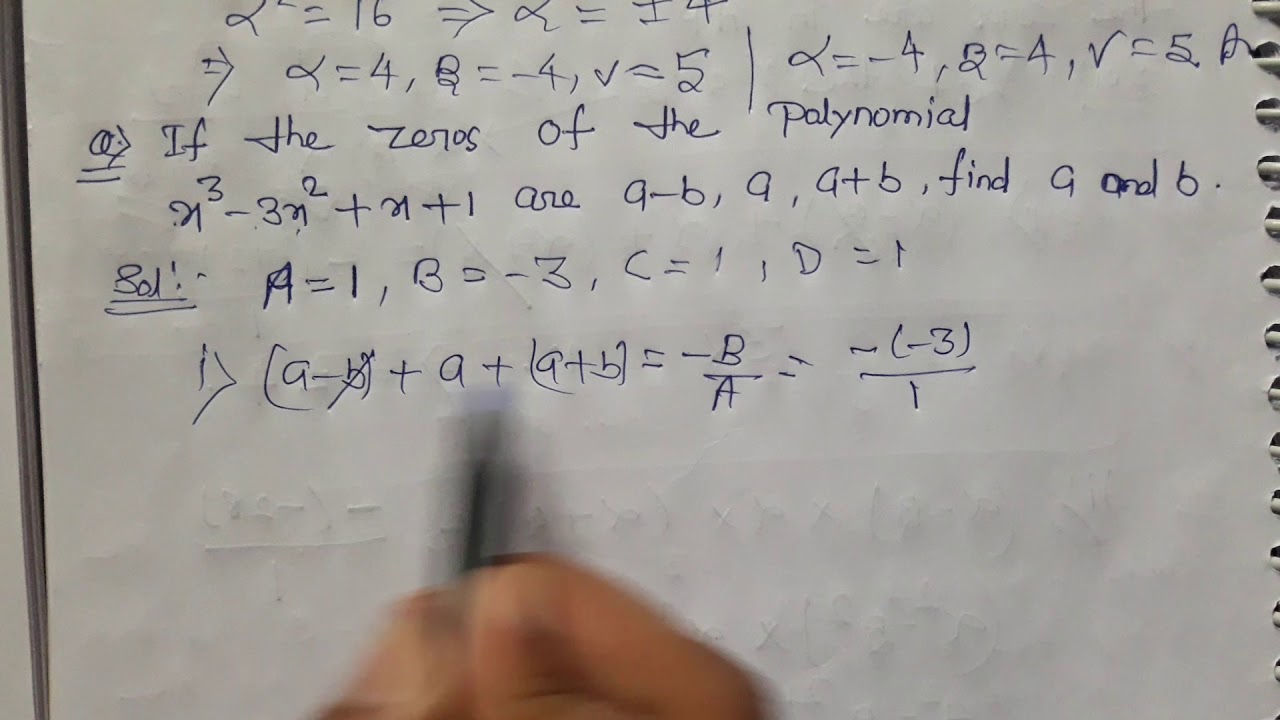 α² = 16 ⇒ α = ±4
⇒ α = 4, β = -4, γ = 5 | α = -4, β = 4, γ = 5
Q) If the zeros of the polynomial
x³ - 3x² + x + 1 are a-b, a, a+b, find a and b.
Sol:- A = 1, B = -3, C = 1, D = 1
i) (a-b) + a + (a+b) = -B/A = -(-3)/1